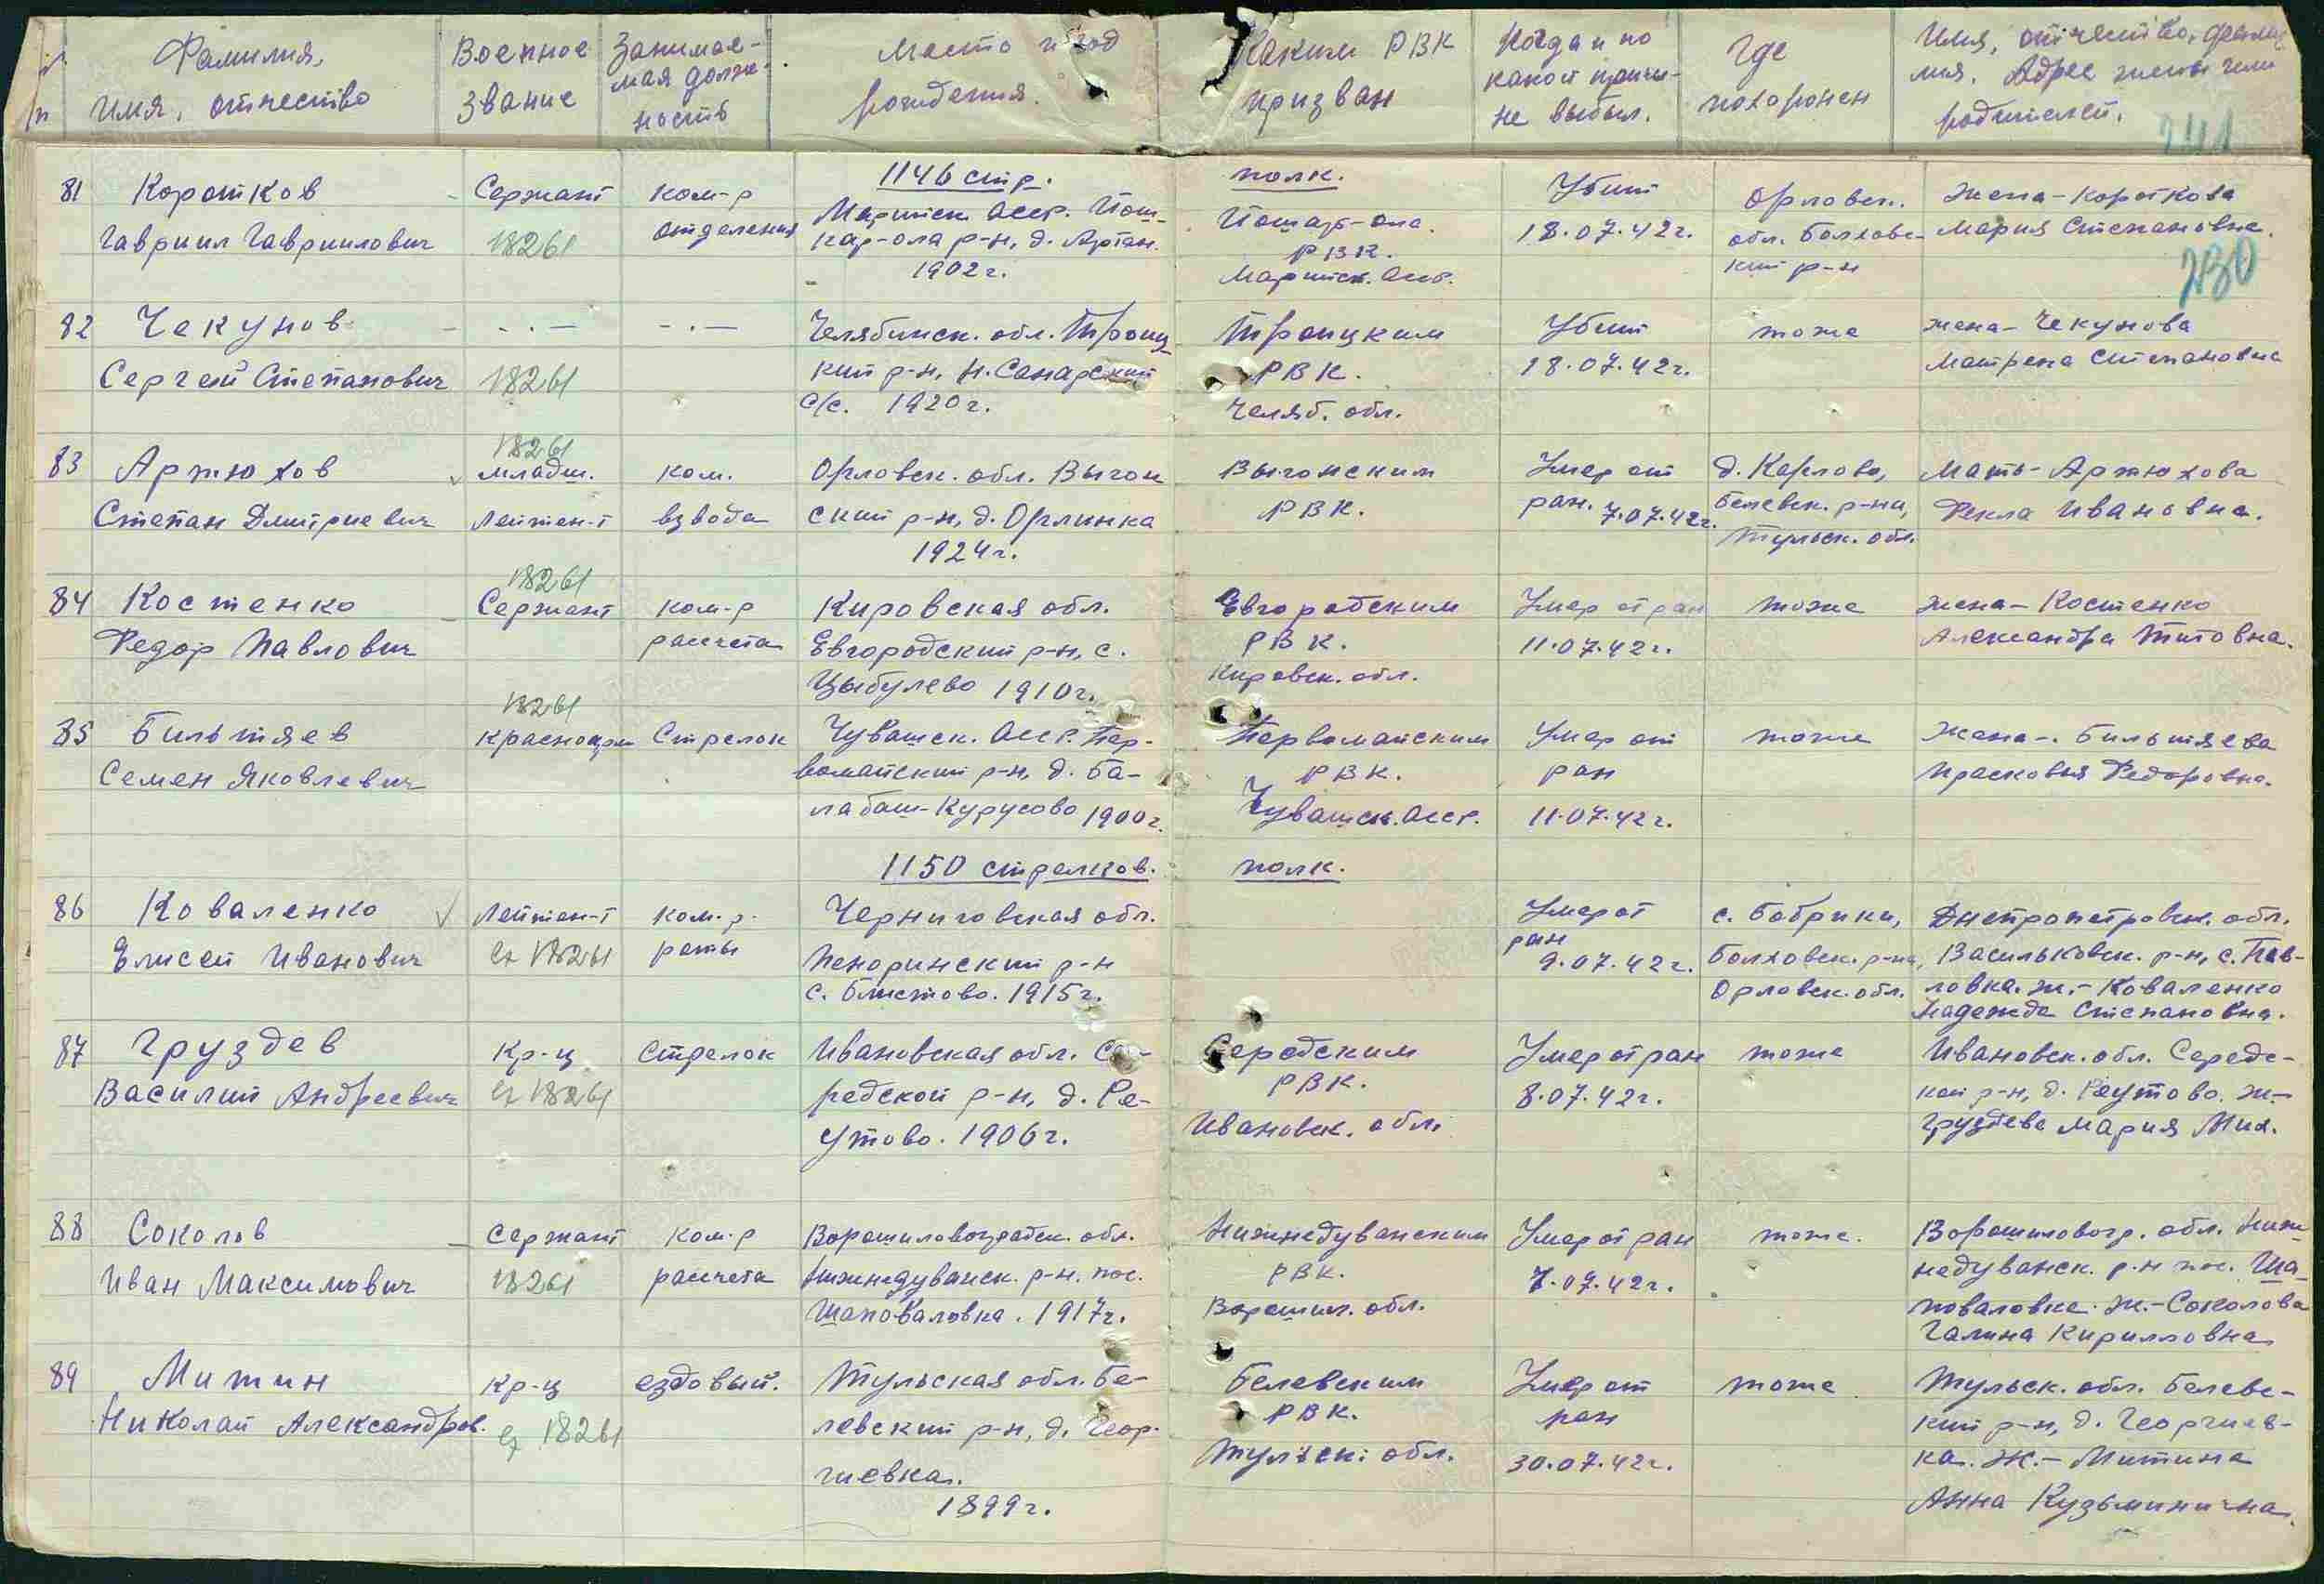 № п/п
Фамилия, имя, отчество
Военное звание
Занимаемая должность
Место и год рождения.
Каким РВК призван
Когда и по какой причине выбыл.
Где похоронен
Имя, отчество, фамилия. Адрес жены или родителей.
241
230
1146 стр. полк.
81 Коротков Сержант ком-р Марийск. Асср. Йош- Йошкар-ола. Убит Орловск. жена-Короткова
Гавриил Гавриилович 18261 отделения кар-ола р-н, д. Артан. РВК. 18.07.42г. обл. Болховс- Мария Степановна.
1902г. Марийск. Асср. кий р-н
82 Чекунов -·- -·- Челябинск. обл. Троиц- Троицким Убит тоже жена-Чекунова
Сергей Степанович 18261 кий р-н, Н. Санарский РВК. 18.07.42г. Матрена Степановна
с/с. 1920г. Челяб. обл.
18261
83 Артюхов младш. ком. Орловск. обл. Выгон Выгонским Умер от д. Карлово, Мать-Артюхова
Степан Дмитриевич Лейтен-т взвода ский р-н, д. Орлинка РВК. ран. 7.07.42г. Белевск. р-на, Фекла Ивановна.
1924г. Тульск. обл.
18261
84 Костенко Сержант ком-р Кировская обл. Евгородским Умер от ран тоже жена-Костенко
Федор Павлович рассчета Евгородский р-н, с. РВК. 11.07.42г. Александра Титовна.
Цыбулево 1910г. Кировск. обл.
18261
85 Бильтяев красноарм Стрелок Чувашск. Асср. Пер- Первомайским Умер от тоже Жена-Бильтяева
Семен Яковлевич вомайский р-н, д. Ба- РВК. ран Прасковья Федоровна.
лабаш-Курусово 1900г. Чувашск. Асср. 11.07.42г.
1150 стрелков. полк.
86 Коваленко Лейтен-т ком-р. Черниговская обл. Умер от с. Бобрики, Днепропетровск. обл.
Елисей Иванович 18261 роты р-н ран 9.07.42г. Болховск. р-на, Васильковск. р-н, с. Пав-
с. Блистово. 1915г. Орловск. обл. ловка. ж.-Коваленко
Надежда Степановна.
87 Груздев Кр-ц Стрелок Ивановская обл. Се- Середским Умер от ран тоже Ивановск. обл. Середс-
Василий Андреевич 18261 редской р-н, д. Ре- РВК. 8.07.42г. кой р-н, д. Реутово. ж-
утово. 1906г. Ивановск. обл. Груздева Мария Мих.
88 Соколов Сержант ком-р Ворошиловградск. обл. Нижнедуванским Умер от ран тоже. Ворошиловгр. обл. Ниж-
Иван Максимович 18261 рассчета Нижнедуванск. р-н. пос. РВК. 7.07.42г. недуванск. р-н пос. Ша-
Шаповаловка. 1917г. Ворошил. обл. поваловка. ж.-Соколова
Галина Кирилловна
89 Митин Кр-ц ездовый. Тульская обл. Бе- Белевским Умер от тоже Тульск. обл. Белевс-
Николай Александров. 18261 левский р-н, д. Геор- РВК. ран кий р-н, д. Георгиев-
гиевка. Тульск. обл. 30.07.42г. ка. Ж.-Митина
1899г. Анна Кузьминична.